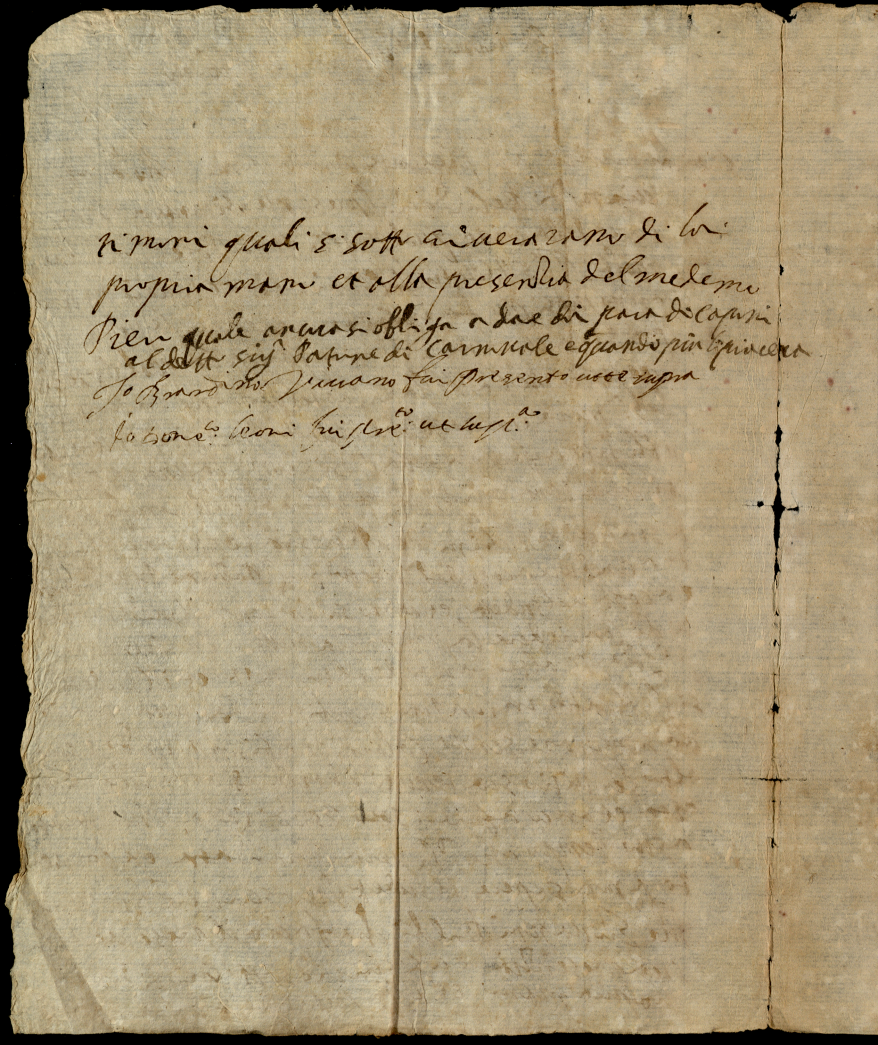 timoni quali si sotto scriverano di lor
propria mano et alla presentia del medemo
Piero quale ancora si obliga a dare doi para di caponi
al detto Sigr Patrone di Carnevale e quando più li piacera
Io Brandano Viviano fui presente ut supra
Io Dome.co Leoni fui pre.te ut sup.a